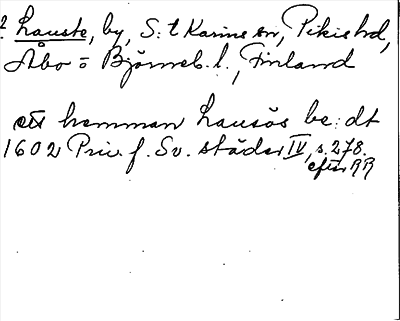 2 Lauste, by, S:t Karins sn, Pikie hd,
Åbo = Björneb. l., Finland
ett hemman Lausös be: dt
1602 Priv. f. Sv. städer IV, s. 278.
efter RR